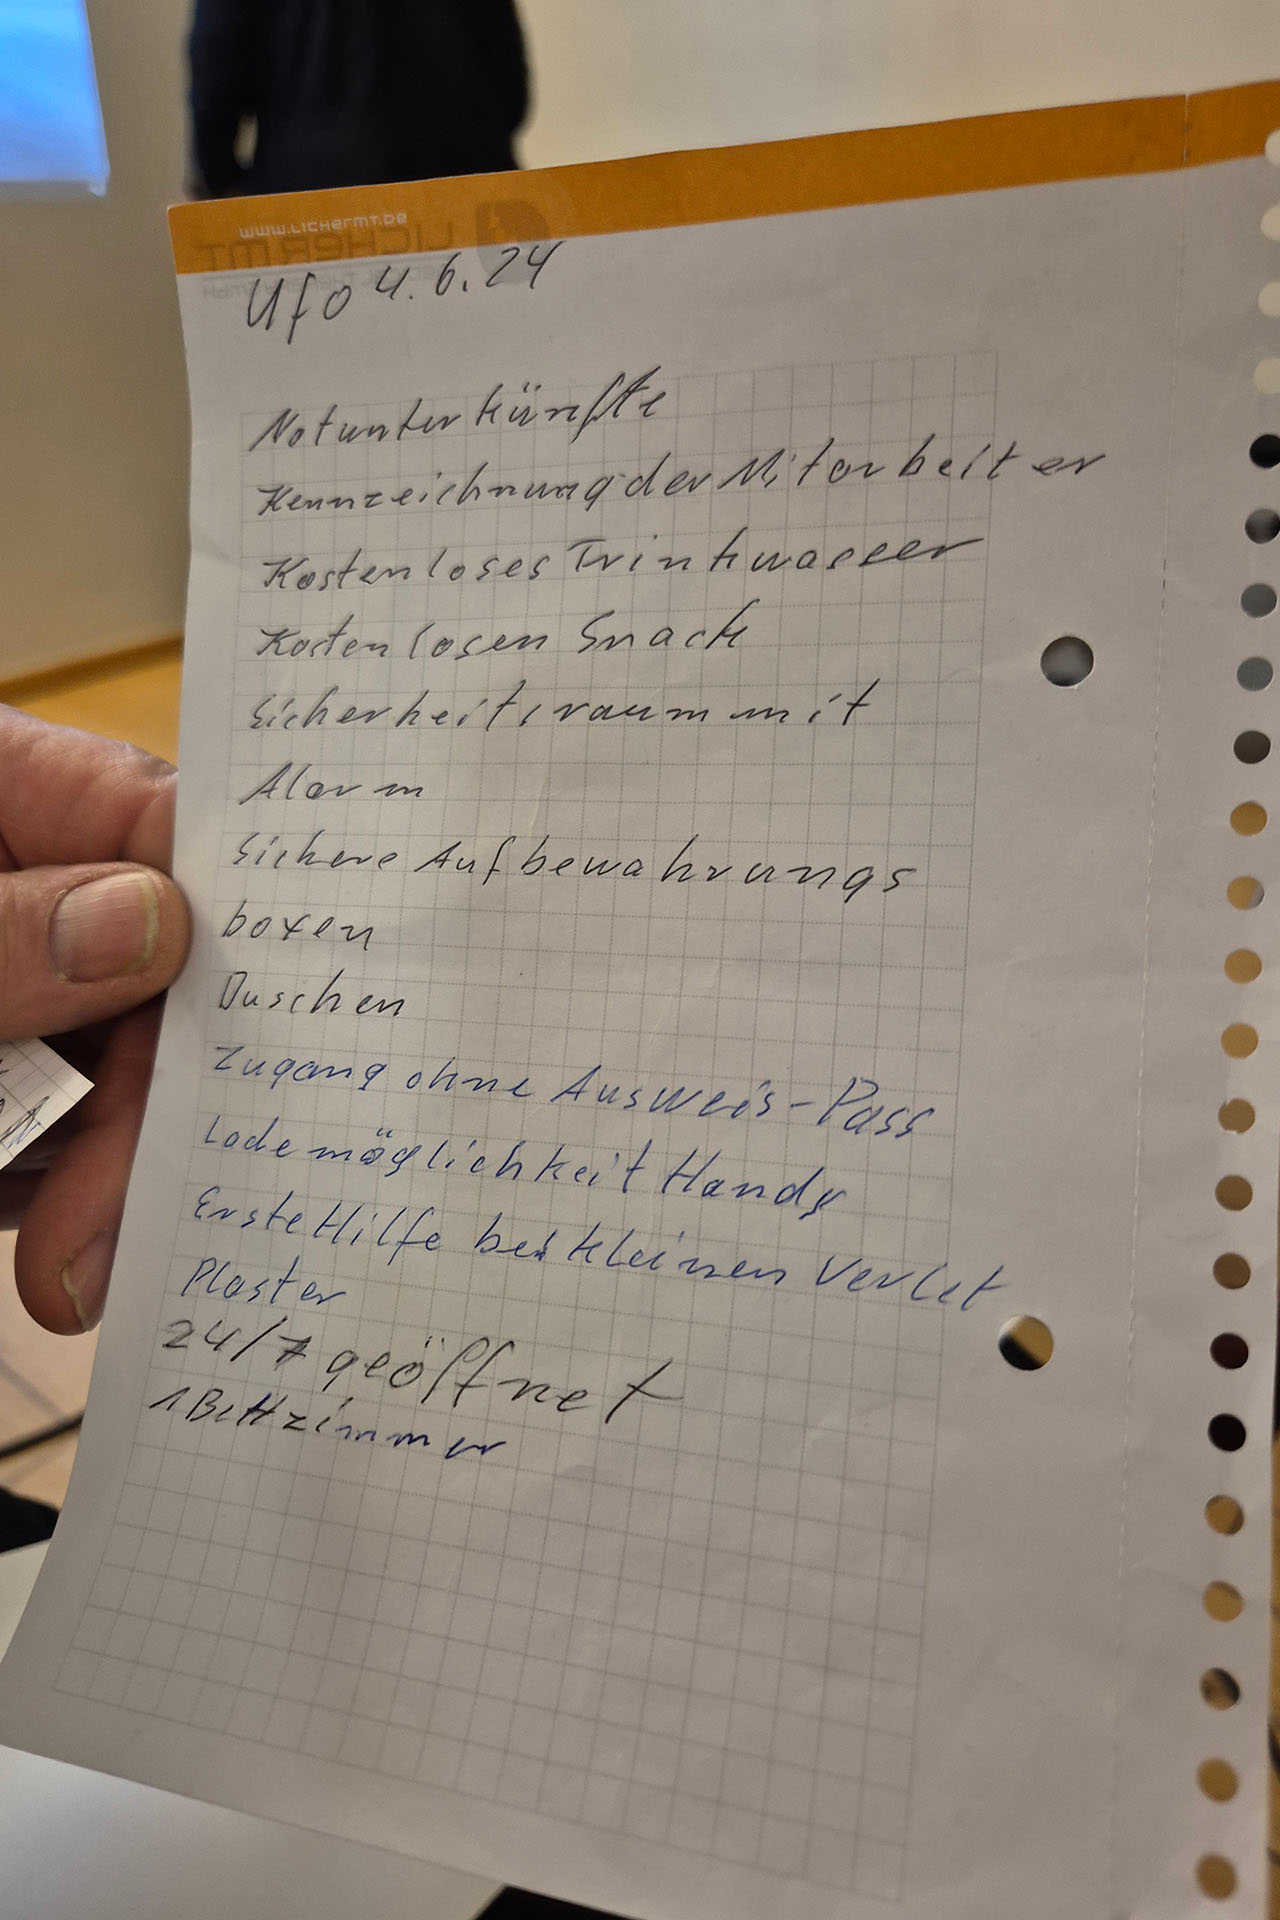 www.LICHERMT.DE
LICHER MT
Ufo 4.6.24
Notunterkünfte
Kennzeichnung der Mitarbeiter
Kostenloses Trinkwasser
Kostenlosen Snack
Sicherheitsraum mit
Alarm
Sichere Aufbewahrungs
boxen
Duschen
Zugang ohne Ausweis-Pass
Lademöglichkeit Handy
Erste Hilfe bei kleinen Verlet
Plaster
24/7 geöffnet
1 Bettzimmer